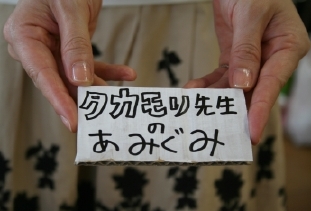 タカモリ先生
の
あみぐみ